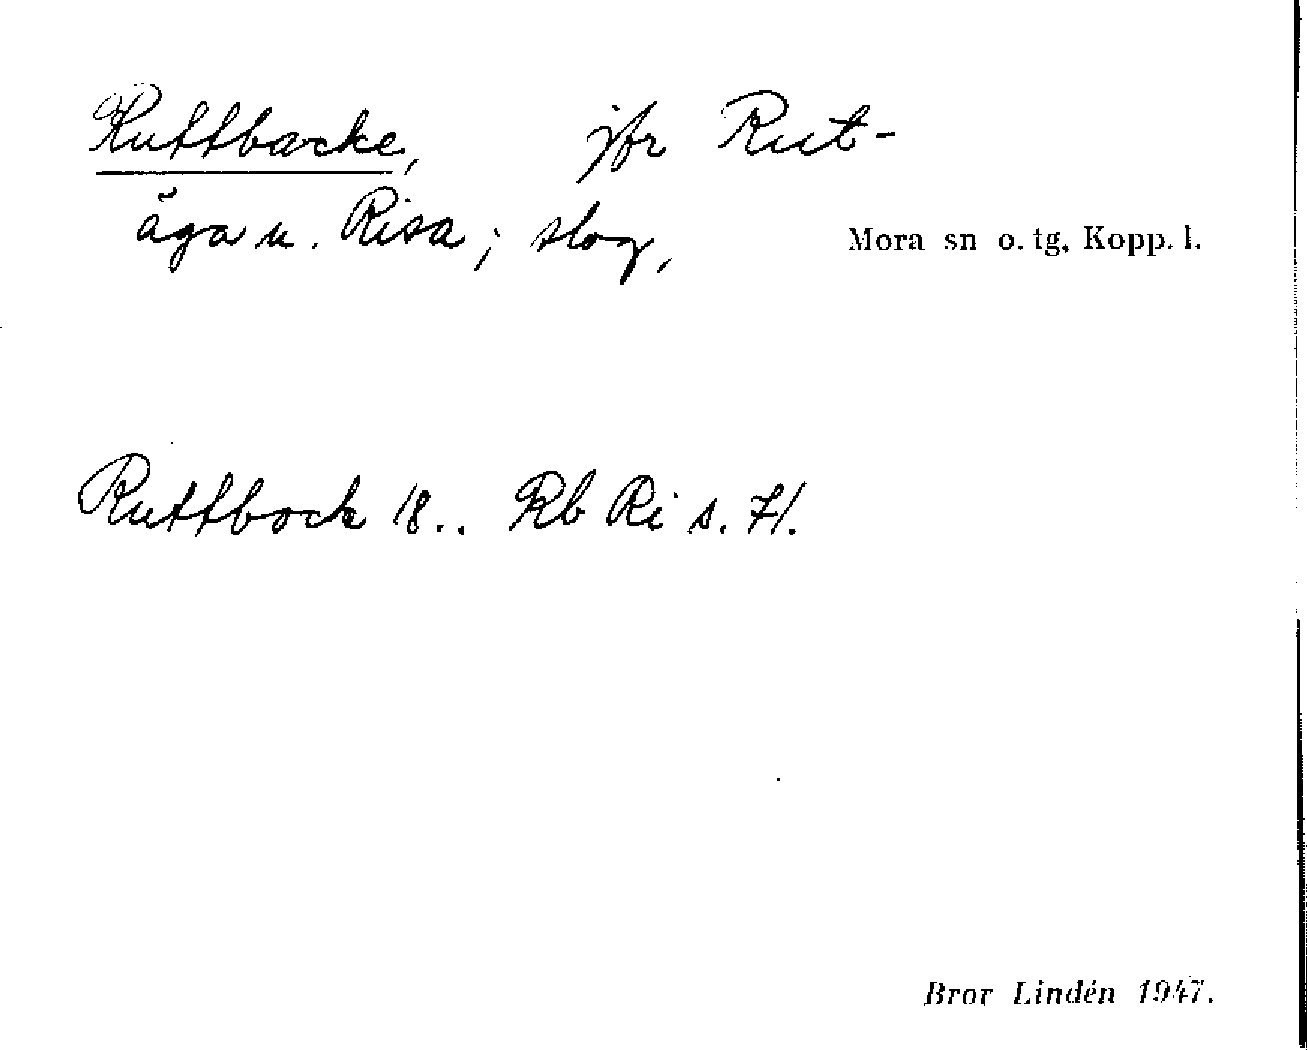 Ruttbacke, jfr Rut-
åga u. Risa; slog, Mora sn o. tg, Kopp. l.
Ruttbock 18.. Rb Ri s. 71.
Bror Lindén 1947.